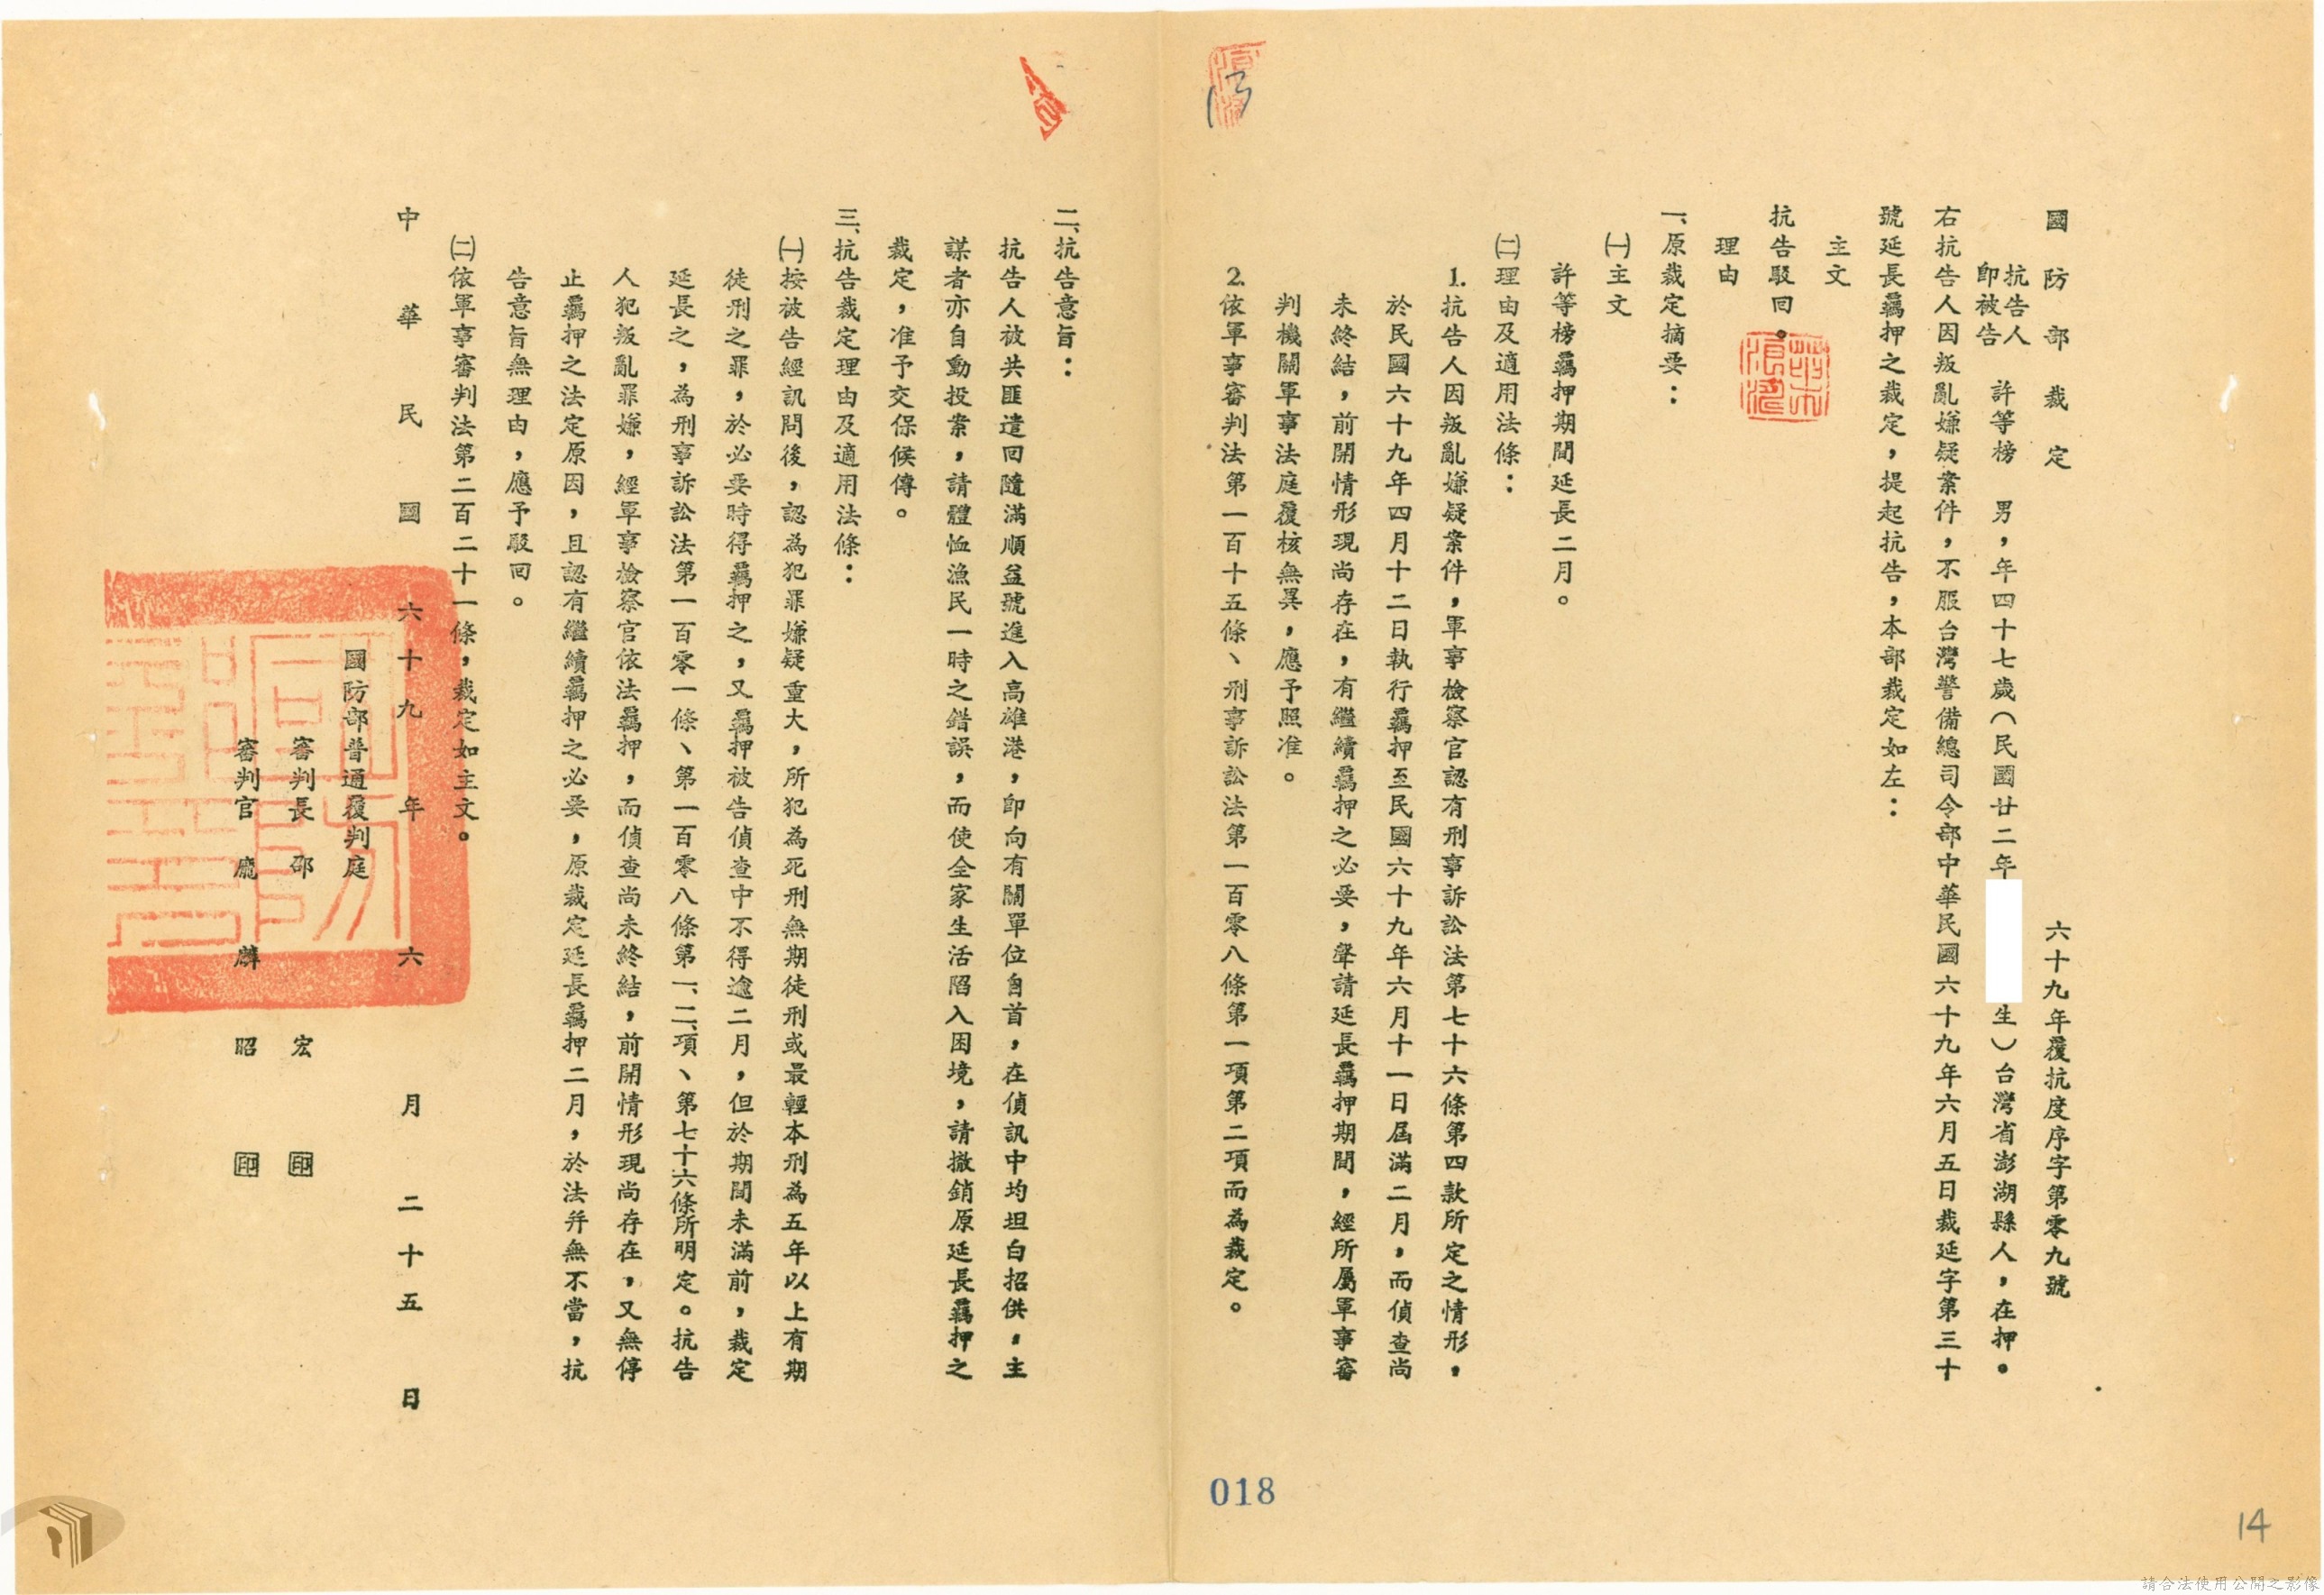 國防部裁定
六十九年覆抗度序字第零九號
抗告人
即被告
許等榜 男，年四十七歲（民國廿二年 生）台灣省澎湖縣人，在押。
右抗告人因叛亂嫌疑案件，不服台灣警備總司令部中華民國六十九年六月五日裁延字第三十
號延長羈押之裁定，提起抗告，本部裁定如左：
主文
抗告駁回。
理由
一、原裁定摘要：
㈠主文
許等榜羈押期間延長二月。
㈡理由及適用法條：
1.抗告人因叛亂嫌疑案件，軍事檢察官認有刑事訴訟法第七十六條第四款所定之情形，
於民國六十九年四月十二日執行羈押至民國六十九年六月十一日屆滿二月，而偵查尚
未終結，前開情形現尚存在，有繼續羈押之必要，聲請延長羈押期間，經所屬軍事審
判機關軍事法庭覆核無異，應予照准。
2.依軍事審判法第一百十五條、刑事訴訟法第一百零八條第一項第二項而為裁定。
二、抗告意旨：
抗告人被共匪遣回隨滿順益號進入高雄港，即向有關單位自首，在偵訊中均坦白招供，主
謀者亦自動投案，請體恤漁民一時之錯誤，而使全家生活陷入困境，請撤銷原延長羈押之
裁定，准予交保候傳。
三、抗告裁定理由及適用法條：
㈠按被告經訊問後，認為犯罪嫌疑重大，所犯為死刑無期徒刑或最輕本刑為五年以上有期
徒刑之罪，於必要時得羈押之，又羈押被告偵查中不得逾二月，但於期間未滿前，裁定
延長之，為刑事訴訟法第一百零一條、第一百零八條第一、二項、第七十六條所明定。抗告
人犯叛亂罪嫌，經軍事檢察官依法羈押，而偵查尚未終結，前開情形現尚存在，又無停
止羈押之法定原因，且認有繼續羈押之必要，原裁定延長羈押二月，於法并無不當，抗
告意旨無理由，應予駁回。
㈡依軍事審判法第二百二十一條，裁定如主文。
中華民國六十九年六月二十五日
國防部普通覆判庭
審判長 邵 宏 印
審判官 龐 麟 昭 印
13
018
14
請合法使用公開之影像